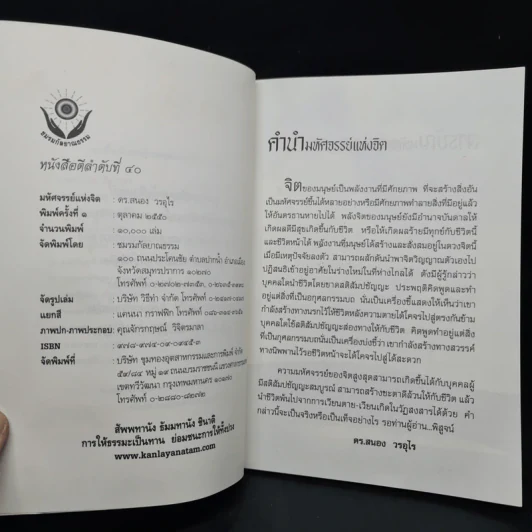 ชมรมกัลยาณธรรม
หนังสือดีลำดับที่ ๔๐
มหัศจรรย์แห่งจิต : ดร.สนอง วรอุไร
พิมพ์ครั้งที่ ๑ : ตุลาคม ๒๕๕๐
จำนวนพิมพ์ : ๑๐,๐๐๐ เล่ม
จัดพิมพ์โดย : ชมรมกัลยาณธรรม
๑๐๐ ถนนประโคนชัย ตำบลปากน้ำ อำเภอเมือง
จังหวัดสมุทรปราการ ๑๐๒๗๐
จัดรูปเล่ม : บริษัท วิธิทำ จำกัด
แยกสี : แคนนา กราฟฟิก
ภาพปก-ภาพประกอบ : คุณจักรกฤษณ์ วิจิตรมาลา
ISBN
จัดพิมพ์ที่ : บริษัท ขุมทองอุตสาหกรรมและการพิมพ์ จำกัด
เขตทวีวัฒนา กรุงเทพมหานคร
สัพพทานัง ธัมมทานัง ชินาติ
การให้ธรรมะเป็นทาน ย่อมชนะการให้ทั้งปวง
www.kanlayanatam.com
คำนำมหัศจรรย์แห่งจิต
จิตของมนุษย์เป็นพลังงานที่มีศักยภาพ ที่จะสร้างสิ่งอัน
เป็นมหัศจรรย์ขึ้นได้หลายอย่างหรือมีศักยภาพทำลายสิ่งที่มีอยู่แล้ว
ให้อันตรธานหายไปได้ พลังจิตของมนุษย์ยังมีอำนาจบันดาลให้
เกิดผลดีมีสุขเกิดขึ้นกับชีวิต หรือให้เกิดผลร้ายมีทุกข์กับชีวิตนี้
และชีวิตหน้าได้ พลังงานที่มนุษย์ได้สร้างและสั่งสมอยู่ในดวงจิตนี้
เมื่อมีเหตุปัจจัยลงตัว สามารถผลักดันนำพาจิตวิญญาณตัวเองไป
ปฏิสนธิเข้าอยู่อาศัยในร่างใหม่ในที่ห่างไกลได้ ดังมีผู้รู้กล่าวว่า
บุคคลใดนำชีวิตโดยขาดสติสัมปชัญญะ ประพฤติคิดพูดและทำ
อยู่แต่สิ่งที่เป็นอกุศลกรรมบถ นั่นเป็นเครื่องชี้แสดงให้เห็นว่าเขา
กำลังสร้างทางนรกไว้ให้ชีวิตหลังความตายได้โคจรไปสู่ตรงกันข้าม
บุคคลใดใช้สติสัมปชัญญะส่องทางให้กับชีวิต คิดพูดทำอยู่แต่สิ่ง
ที่เป็นกุศลกรรมบถนั่นเป็นเครื่องบ่งชี้ว่า เขากำลังสร้างทางสวรรค์
ทางนิพพานไว้รอชีวิตหน้าจะได้โคจรไปสู่ได้สะดวก
ความมหัศจรรย์ของจิตสูงสุดสามารถเกิดขึ้นได้กับบุคคลผู้
มีสติสัมปชัญญะสมบูรณ์ สามารถสร้างชะตาดีล้วนให้กับชีวิตได้ แล้วนำ
ชีวิตพ้นไปจากการเวียนตาย-เวียนเกิดในวัฏสงสารได้ด้วย คำ
กล่าวนี้จะเป็นจริงหรือเป็นเท็จอย่างไร รอท่านผู้อ่าน...พิสูจน์
ดร.สนอง วรอุไร